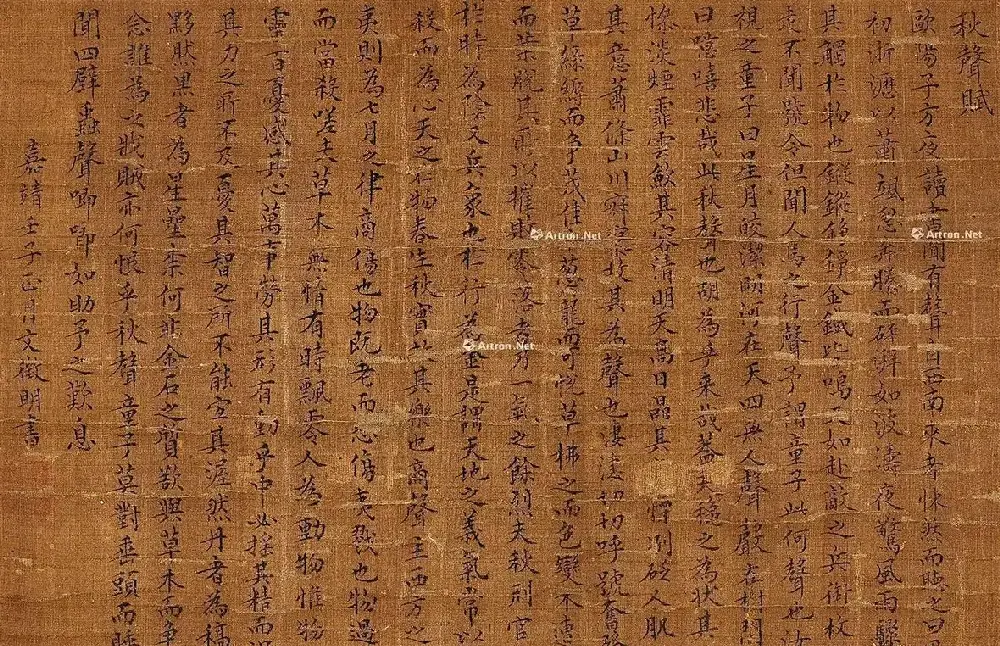 秋聲賦
歐陽子方夜讀書聞有聲自西南來者悚然而聽之曰
初淅瀝以蕭颯忽奔騰而砰湃如波濤夜驚風雨驟
其觸於物也鏦鏦錚錚金鐵皆鳴又如赴敵之兵銜枚
走不聞號令但聞人馬之行聲予謂童子此何聲也汝
視之童子曰星月皎潔明河在天四無人聲聲在樹間
曰噫嘻悲哉此秋聲也胡為乎來哉蓋夫秋之為狀其
慘淡煙霏雲斂其容清明天高日晶其慄冽砭人肌
其意蕭條山川寂寥故其為聲也淒淒切切呼號奮發
草綠縟而爭茂佳木蔥蘢而可悅草拂之而色變木遭
而葉脫其所以摧敗零落者乃一氣之餘烈夫秋刑官
於時為陰又兵象也於行為金是謂天地之義氣常以
殺而為心天之於物春生秋實故其樂也商聲主西方之
夷則為七月之律商傷也物既老而悲傷夷戮也物過
而當殺嗟夫草木無情有時飄零人為動物惟物
靈百憂感其心萬事勞其形有動乎中必搖其精而況
其力之所不及憂其智之所不能宜其渥然丹者為槁
黟然黑者為星星柰何非金石之質欲與草木而爭
念誰為之戕賊亦何恨乎秋聲童子莫對垂頭而睡
聞四壁蟲聲唧唧如助予之歎息
嘉靖壬子正月文徵明書
Artron.Net
Artron.Net
Artron.Net